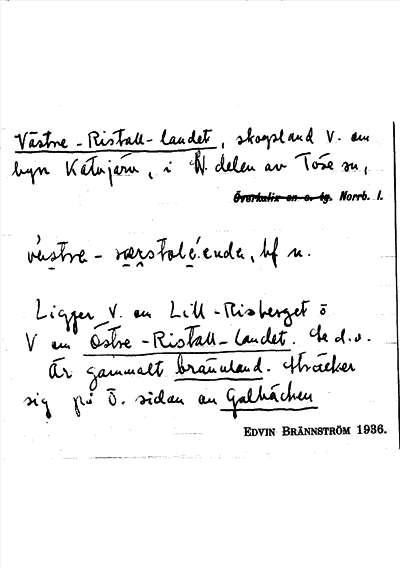 Västre-Ristall-landet, skogsland V. om
byn Katujärn, i N. delen av Töre sn,
Överkalix sn o. tg. Norrb. l.
västre-
bf n.
Ligger V. om Lill-Risberget o
V om Östre-Ristall-landet. Se d.o.
Är gammalt brännland. Sträcker
sig på Ö. sidan av Galbäcken
EDVIN BRÄNNSTRÖM 1936.